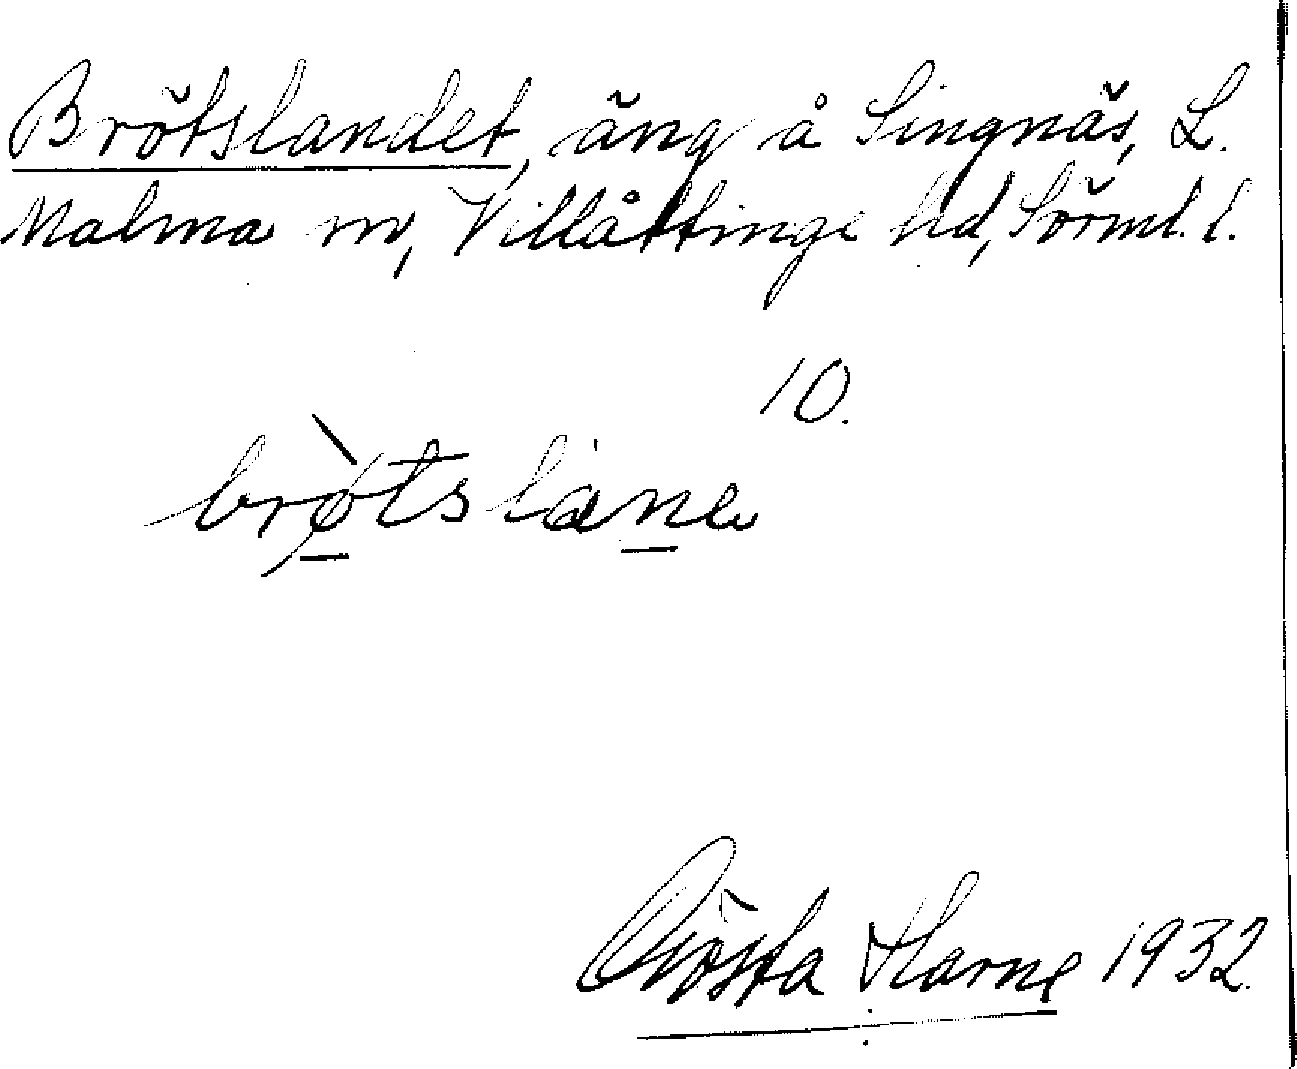 Brötslandet, äng å Singnäs, L.
Malma sn, Villåttinge hd, Sörml. l.
10.
brø̀tslane
Gösta Harne 1932.